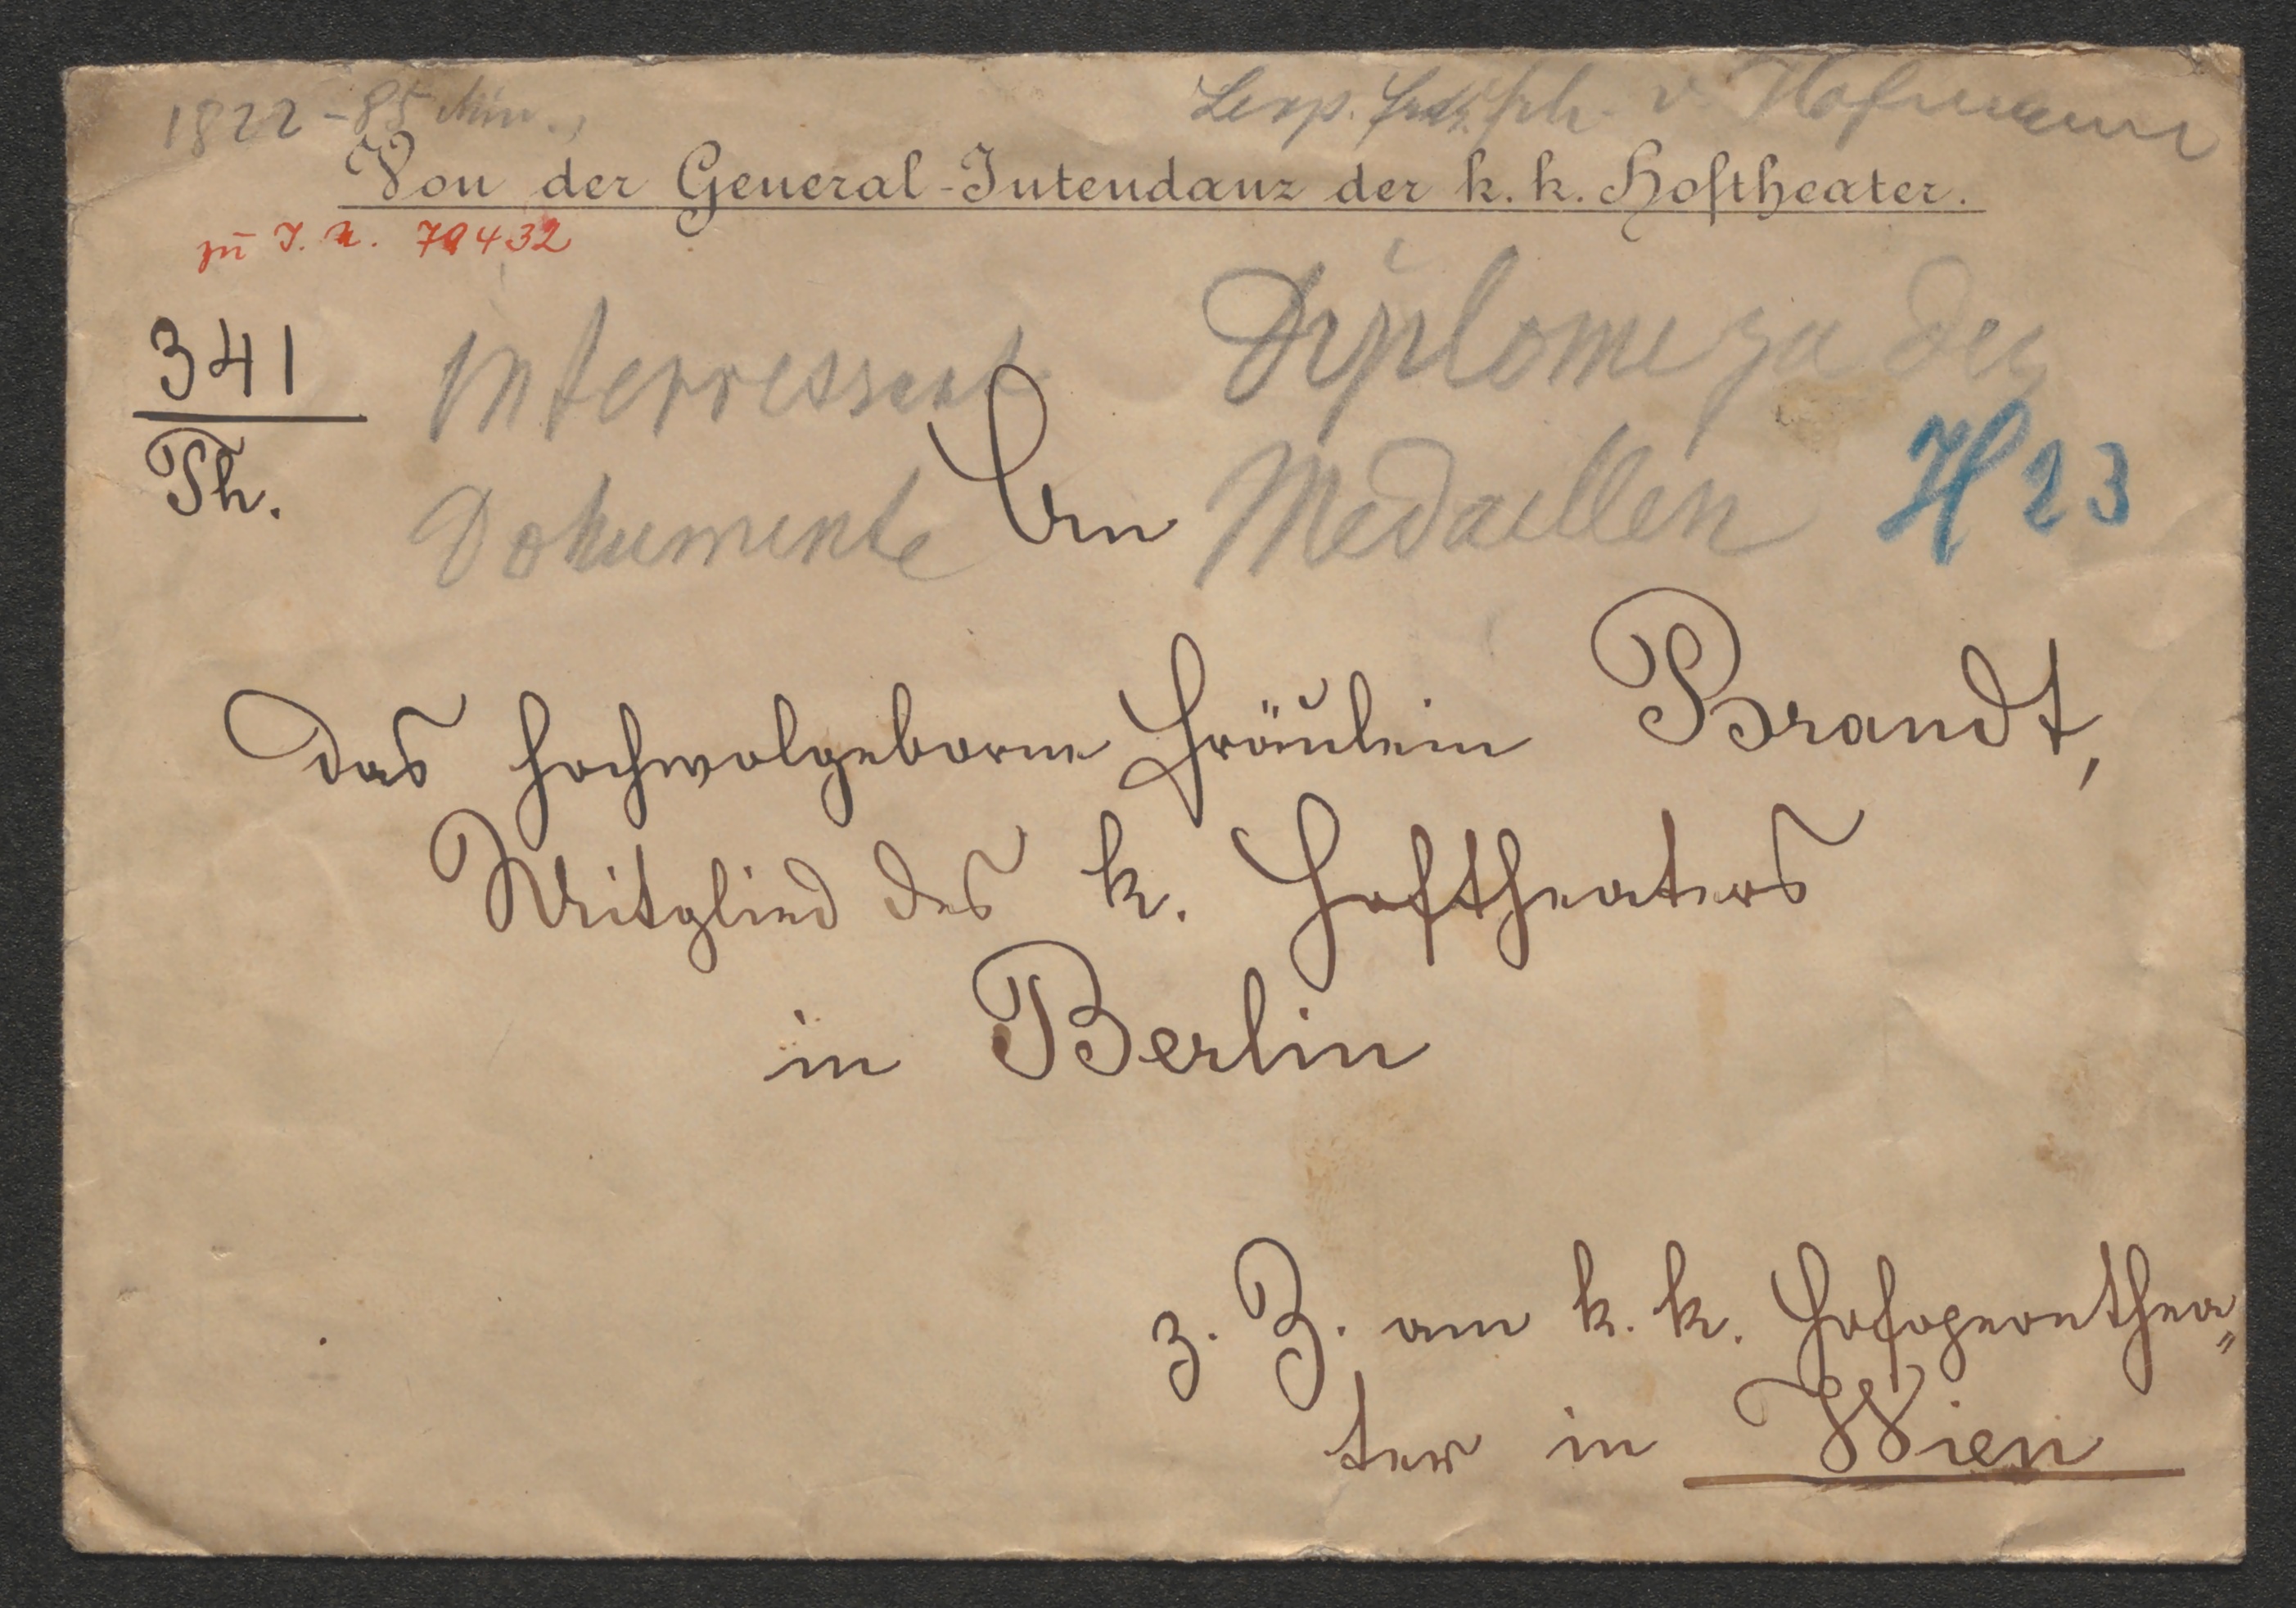 1822-85 Min., Leop. Frdr. Frh. v. Hofmann
Von der General-Intendanz der k. k. Hoftheater.
zu I. N. 70432
341
Th.
Interressant Diplome zu den
Dokumente Medaillen H 23
An
das hochwolgeborne Fräulein Brandt,
Mitglied des k. Hoftheaters
in Berlin
z. Z. am k. k. Hofopernthea„
ter in Wien